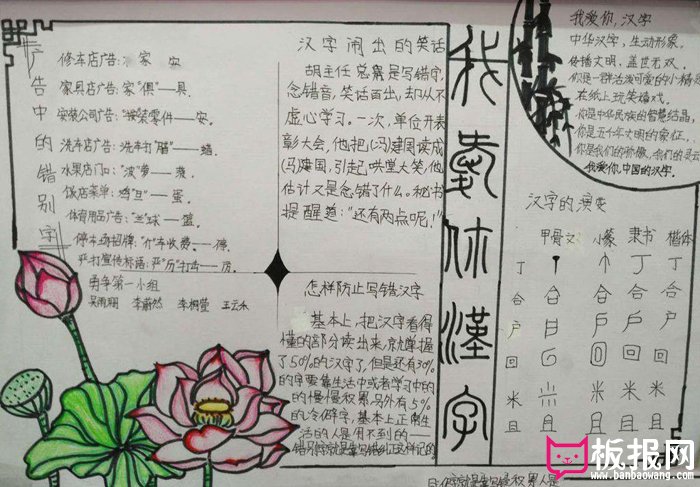 广告中的错别字
家具店广告：家"俱"——具
安装公司广告："按装零件——安。
洗车店广告：洗车打"醋"——蜡
水果店门口："波"萝——菠
饭店菜单：鸡"旦"——蛋
停车场招牌："仃"车收费——停
严打宣传标语：严"历"打击——厉
勇争第一小组
汉字闹出的笑话
胡主任总累是写错字，
念错音，笑话百出，却从不
虚心学习。一次，单位开表
彰大会，他把(冯)建国读成
(马)建国，引起哄堂大笑，他
估计又是念错了什么。秘书
提醒道："还有两点呢！"
怎样防止写错汉字
基本上，把汉字看得
懂的部分读出来，就掌握
了50%的汉字了，但是还有30%
的字要靠生活中或者学习中的
的慢慢积累，另外有5%
的冷僻字，基本上正常生
活的人是用不到的——
我爱你汉字
我爱你，汉字
中华汉字，生动形象，
传播文明，盖世无双，
你是一群活泼可爱的小精灵
在纸上玩笑嬉戏。
你是中华民族的智慧结晶，
你是五千年文明的象征，
我爱你，中国的汉字。
汉字的演变
甲骨文 小篆 隶书 楷体
丁
合
户
回
米
且
板报网
www.banbaowang.com